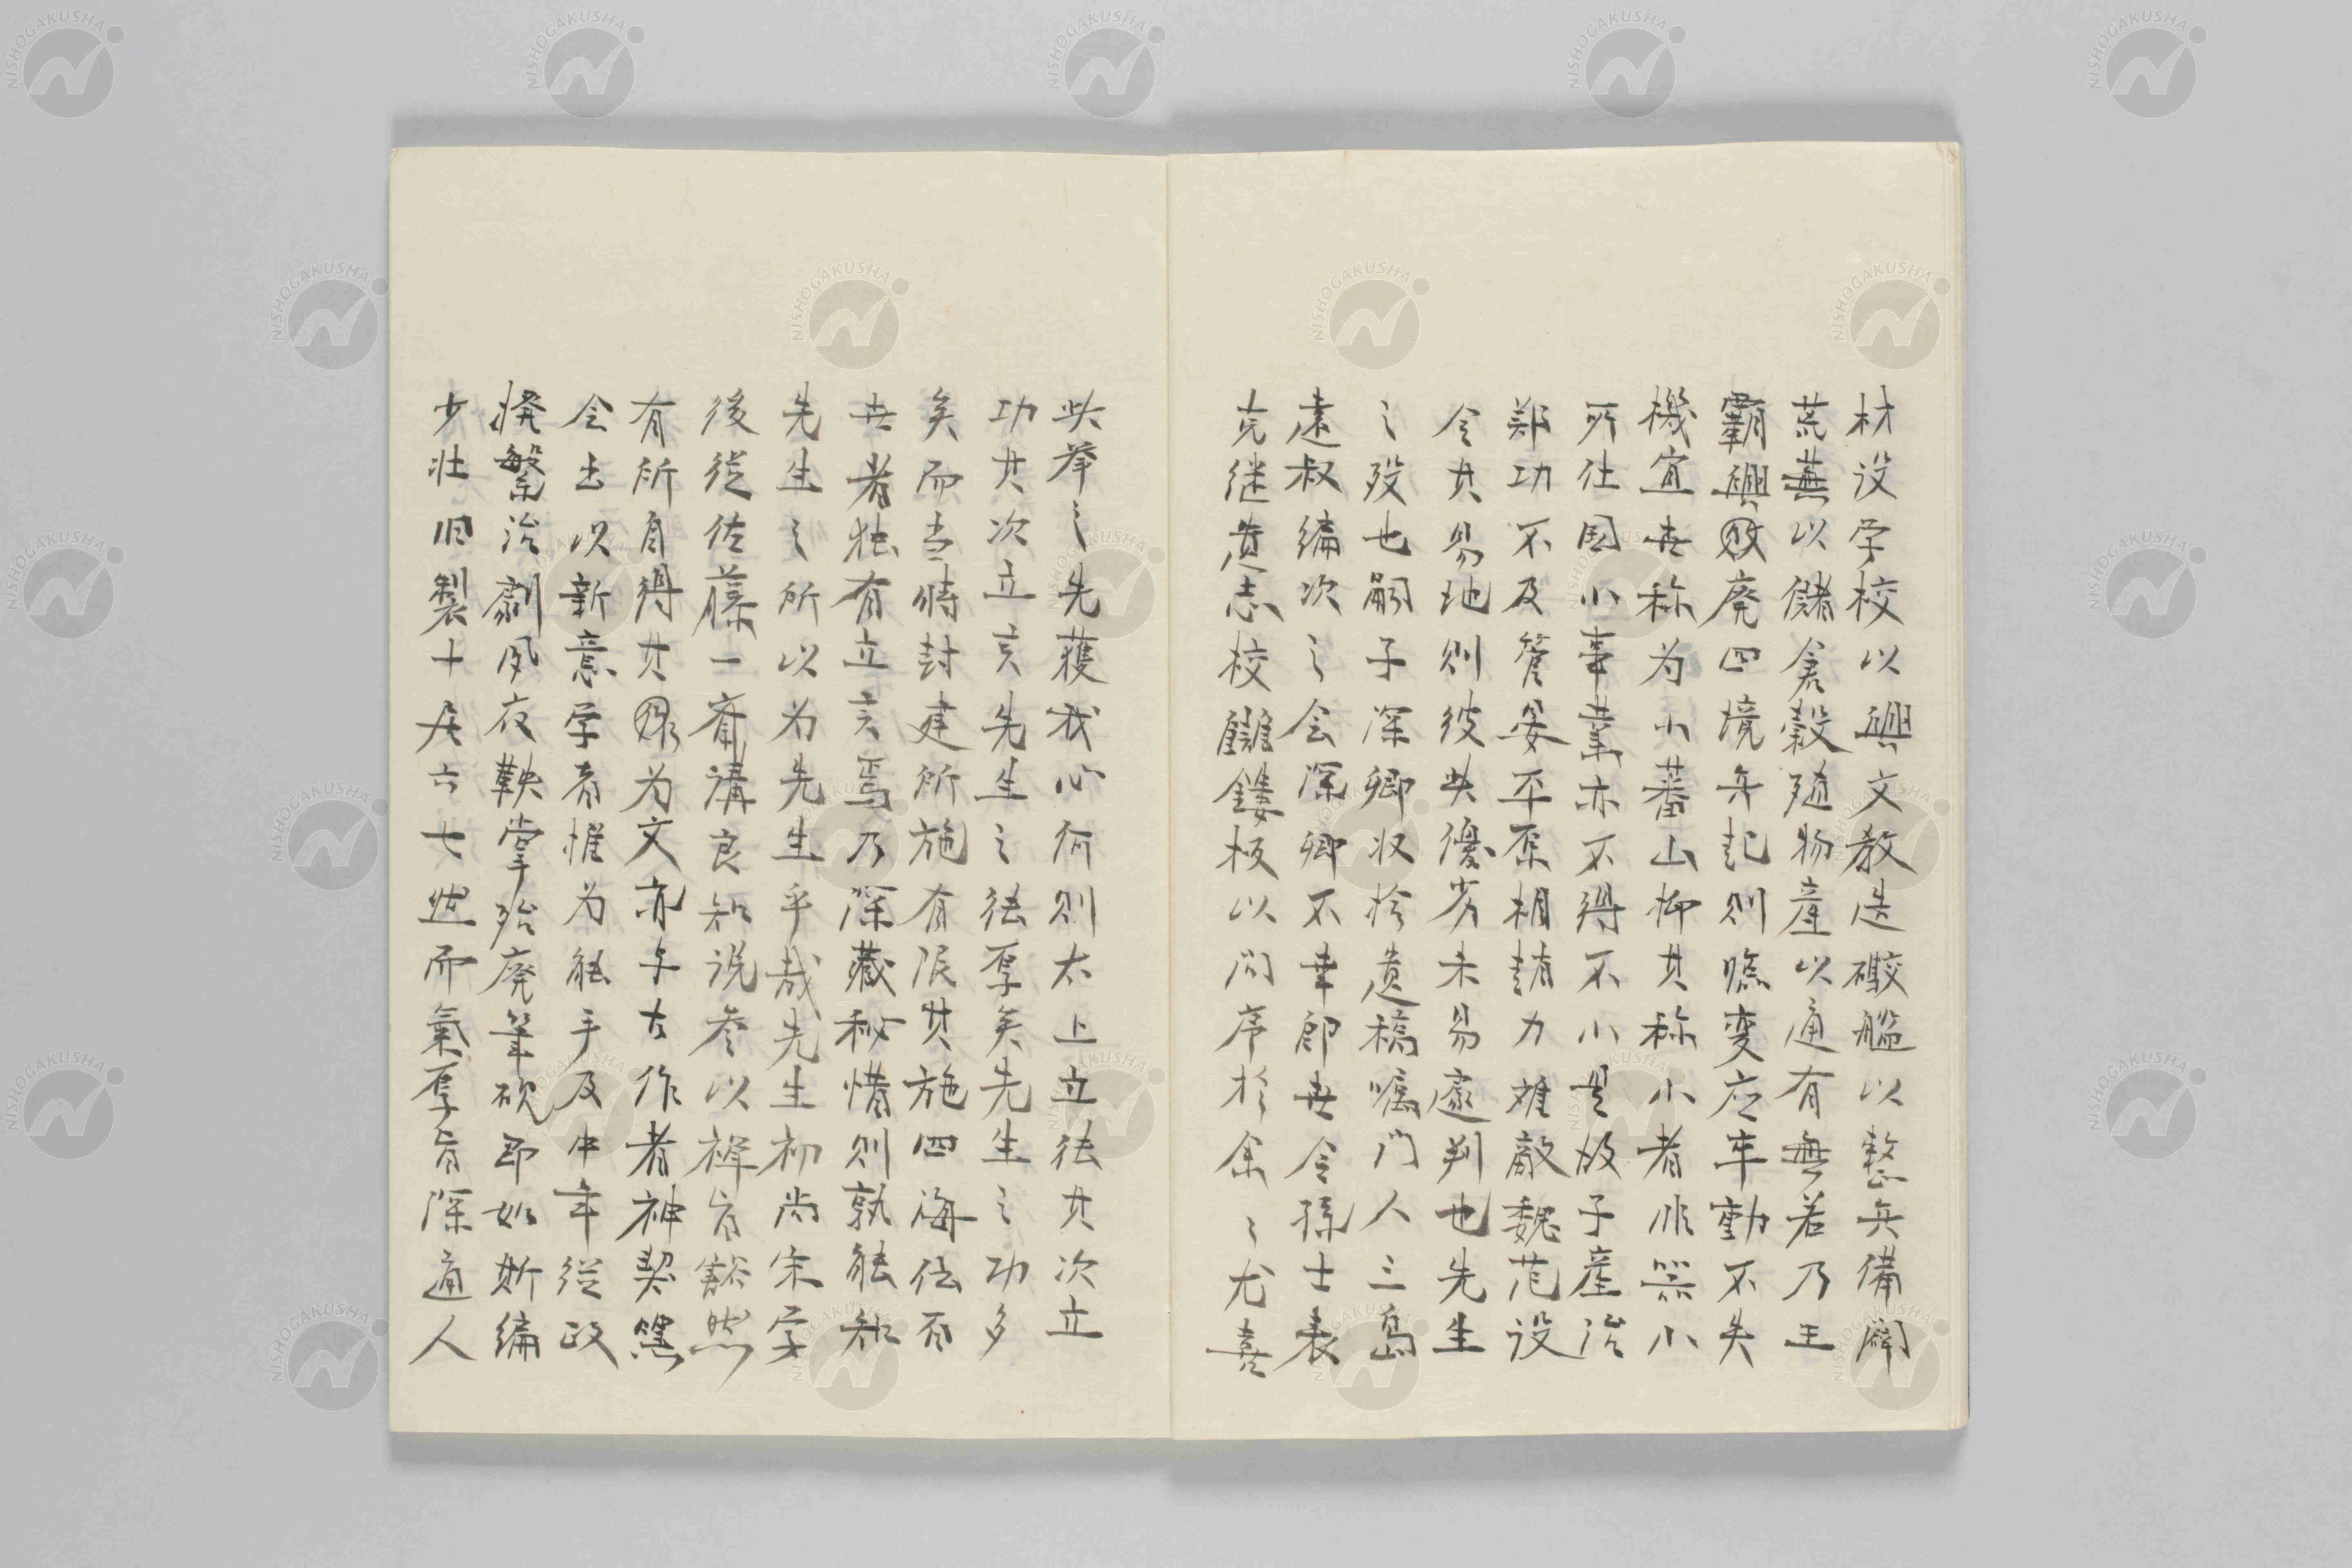 材设学校以興文教造礮艦以整兵備闢
荒蕪以儲倉穀殖物産以通有無若乃王
霸興廃四境兵起則臨变应卒動不失
機宜世称为小蕃山抑其称小者非器小
所仕国小事業亦不得不小是故子産治
鄭功不及管晏平原相趙力难敵魏范设
令其易地則彼此優劣未易遽判也先生
之殁也嗣子深卿收拾遺稿嘱门人三島
遠叔編次之会深卿不幸即世令孫士表
克继遺志校讎鏤板以问序於余々尤喜
此挙之先獲我心何則太上立德其次立
功其次立言先生之德厚矣先生之功多
矣而当時封建所施有限其施四海伝百
世者独有立言焉乃深藏秘惜則孰能知
先生之所以为先生乎哉先生初尚宋学
後從佐藤一齋講良知说参以禅旨豁然
有所自得其为文亦与古作者神契
会出以新意学者惟为能手及中年從政
撥繁治劇夙夜鞅掌殆廃筆砚即如斯編
少壮旧製十居六七然而氣厚旨深通人